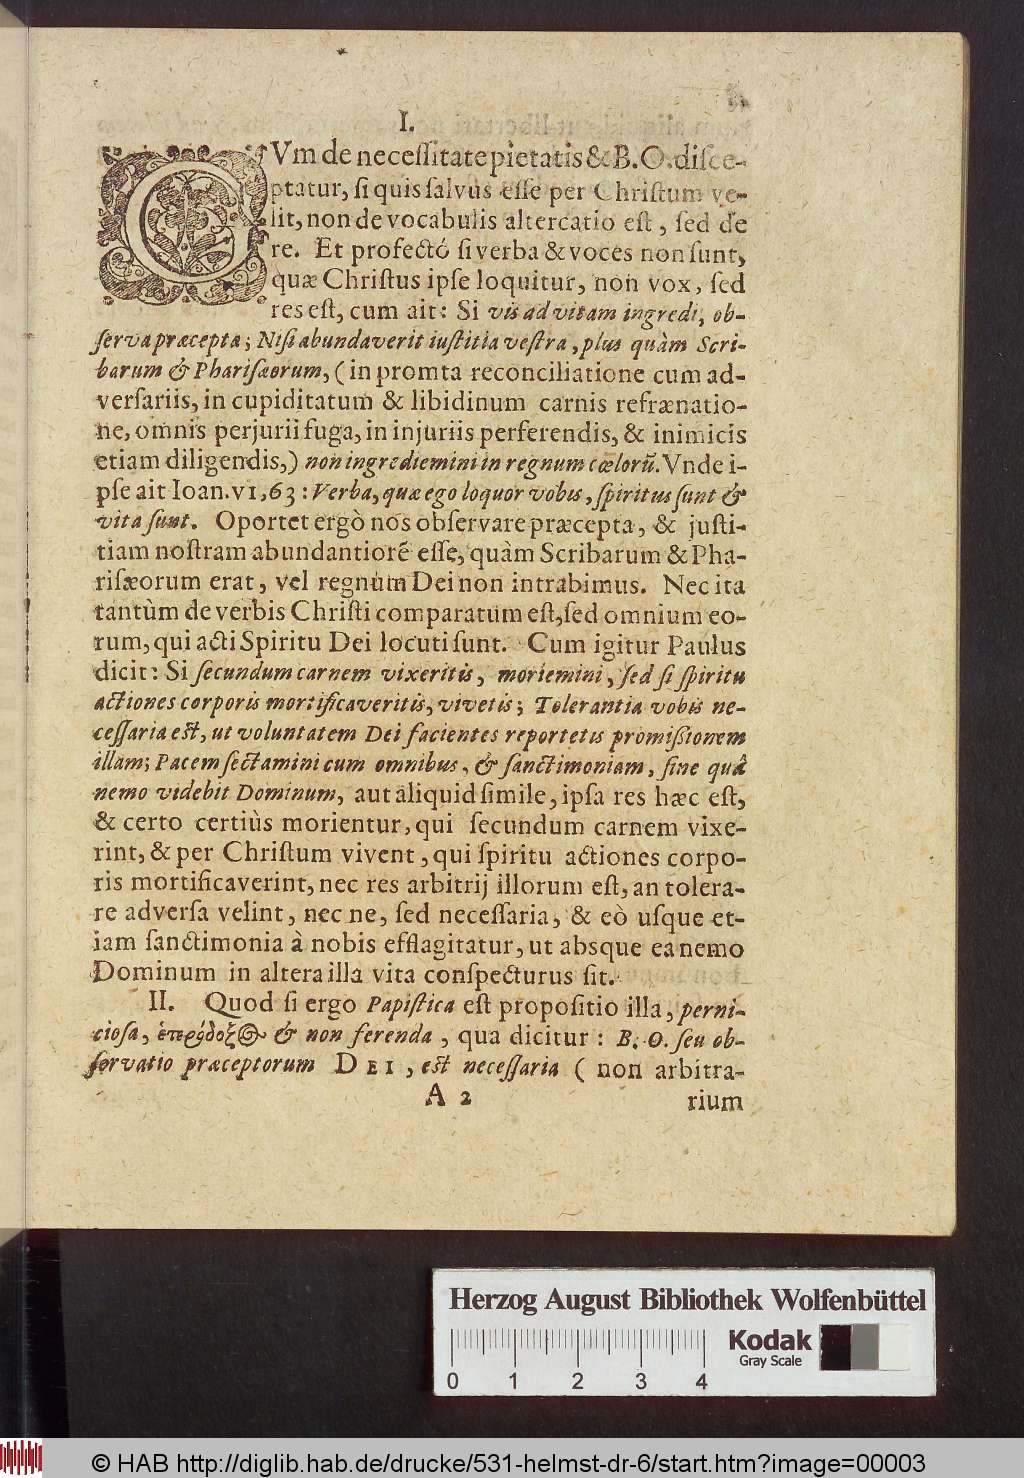 I.
CVm de necessitate pietatis & B. O. disce-
ptatur, si quis salvus esse per Christum ve-
lit, non de vocabulis altercatio est, sed de
re. Et profectò si verba & voces non sunt,
quæ Christus ipse loquitur, non vox, sed
res est, cum ait: Si vis ad vitam ingredi, ob-
serva præcepta; Nisi abundaverit iustitia vestra, plus quàm Scri-
barum & Pharisæorum, (in promta reconciliatione cum ad-
versariis, in cupiditatum & libidinum carnis refrænatio-
ne, omnis perjurii fuga, in injuriis perferendis, & inimicis
etiam diligendis,) non ingrediemini in regnum cœlorũ. Vnde i-
pse ait Ioan. VI, 63: Verba, quæ ego loquor vobis, spiritus sunt &
vita sunt. Oportet ergò nos observare præcepta, & justi-
tiam nostram abundantiorẽ esse, quàm Scribarum & Pha-
risæorum erat, vel regnum Dei non intrabimus. Nec ita
tantùm de verbis Christi comparatum est, sed omnium eo-
rum, qui acti Spiritu Dei locuti sunt. Cum igitur Paulus
dicit: Si secundum carnem vixeritis, moriemini, sed si spiritu
actiones corporis mortificaveritis, vivetis; Tolerantia vobis ne-
cessaria est, ut voluntatem Dei facientes reportetis promissionem
illam; Pacem sectamini cum omnibus, & sanctimoniam, sine quâ
nemo videbit Dominum, aut aliquid simile, ipsa res hæc est,
& certo certiùs morientur, qui secundum carnem vixe-
rint, & per Christum vivent, qui spiritu actiones corpo-
ris mortificaverint, nec res arbitrij illorum est, an tolera-
re adversa velint, nec ne, sed necessaria, & eò usque et-
iam sanctimonia à nobis efflagitatur, ut absque ea nemo
Dominum in altera illa vita conspecturus sit.
II. Quod si ergo Papistica est propositio illa, perni-
ciosa, ἑτερόδοξος & non ferenda, qua dicitur: B. O. seu ob-
servatio præceptorum DEI, est necessaria (non arbitra-
A 2 rium
Herzog August Bibliothek Wolfenbüttel
Kodak
Gray Scale
0 1 2 3 4
© HAB http://diglib.hab.de/drucke/531-helmst-dr-6/start.htm?image=00003